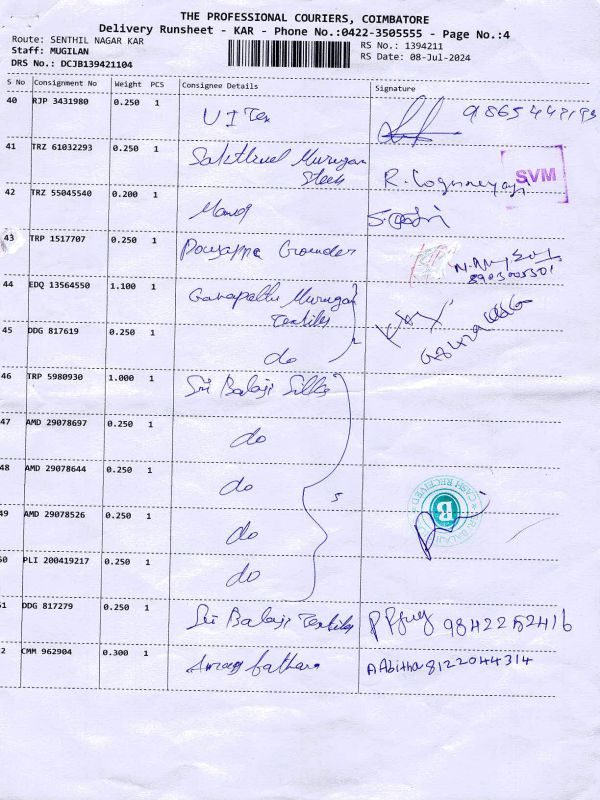 THE PROFESSIONAL COURIERS, COIMBATORE
Delivery Runsheet - KAR - Phone No.:0422-3505555 - Page No.:4
Route: SENTHIL NAGAR KAR
Staff: MUGILAN
DRS No.: DCJB139421104
RS No.: 1394211
RS Date: 08-Jul-2024
S No Consignment No Weight PCS Consignee Details Signature
40 RJP 3431980 0.250 1 U I Tex
41 TRZ 61032293 0.250 1 Sakthivel Murugan Steels
SVM
42 TRZ 55045540 0.200 1
43 TRP 1517707 0.250 1 Gounder
8903005301
44 EDQ 13564550 1.100 1 Ganapathi Murugan Textiles
45 DDG 817619 0.250 1 do
46 TRP 5980930 1.000 1 Sri Balaji Silks
47 AMD 29078697 0.250 1 do
48 AMD 29078644 0.250 1 do
5
49 AMD 29078526 0.250 1 do
CASH RECEIVED
B
50 PLI 200419217 0.250 1 do
51 DDG 817279 0.250 1 Sri Balaji Textiles 9842252416
2 CMM 962904 0.300 1 A Abitha 8122044314